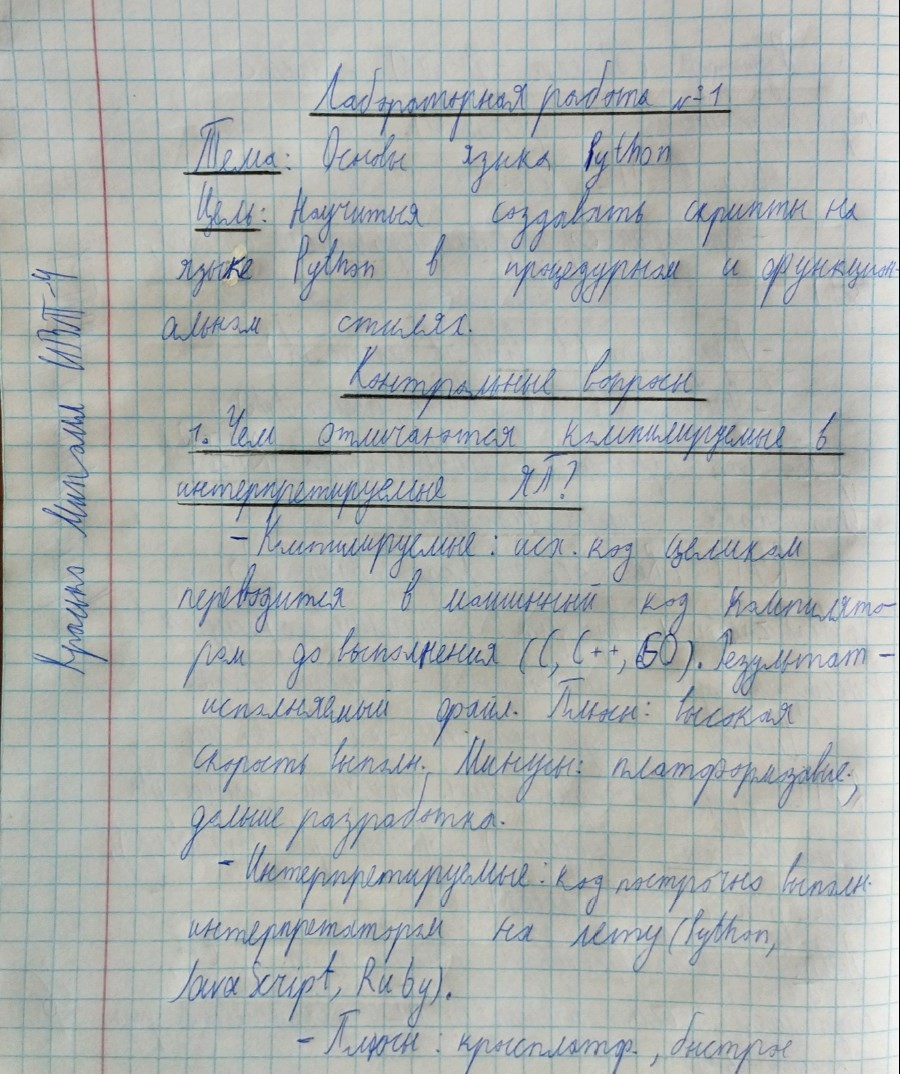 Лабораторная работа №1
Тема: Основы языка Python
Цель: Научиться создавать скрипты на
языке Python в процедурном и функцион-
альном стилях.
Контрольные вопросы
1. Чем отличаются компилируемые в
интерпретируемые ЯП?
- Компилируемые: исх. код целиком
переводится в машинный код компилято-
ром до выполнения (C, C++, GO). Результат -
исполняемый файл. Плюсы: высокая
скорость выполн. Минусы: платформозавис.,
дольше разработка.
- Интерпретируемые: код построчно выполн.
интерпретатором на лету (Python,
JavaScript, Ruby).
- Плюсы: кросплатф., быстрое
Михаил ИВТ-4